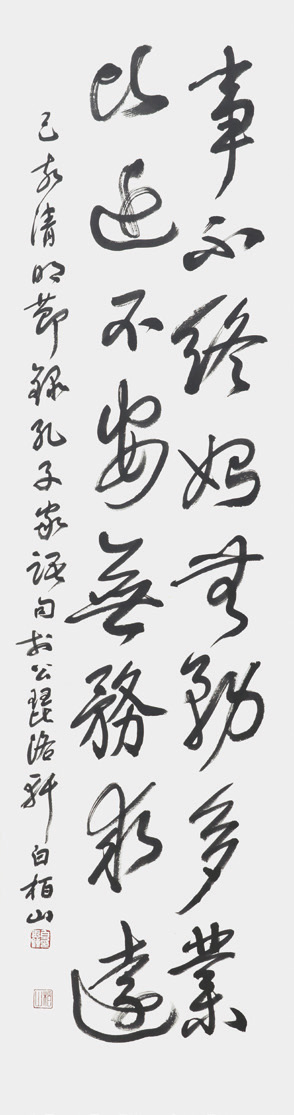 事不終始無務多業
比近不安無務求遠
己亥清明節錄孔子家語句於公琵軒白柏山